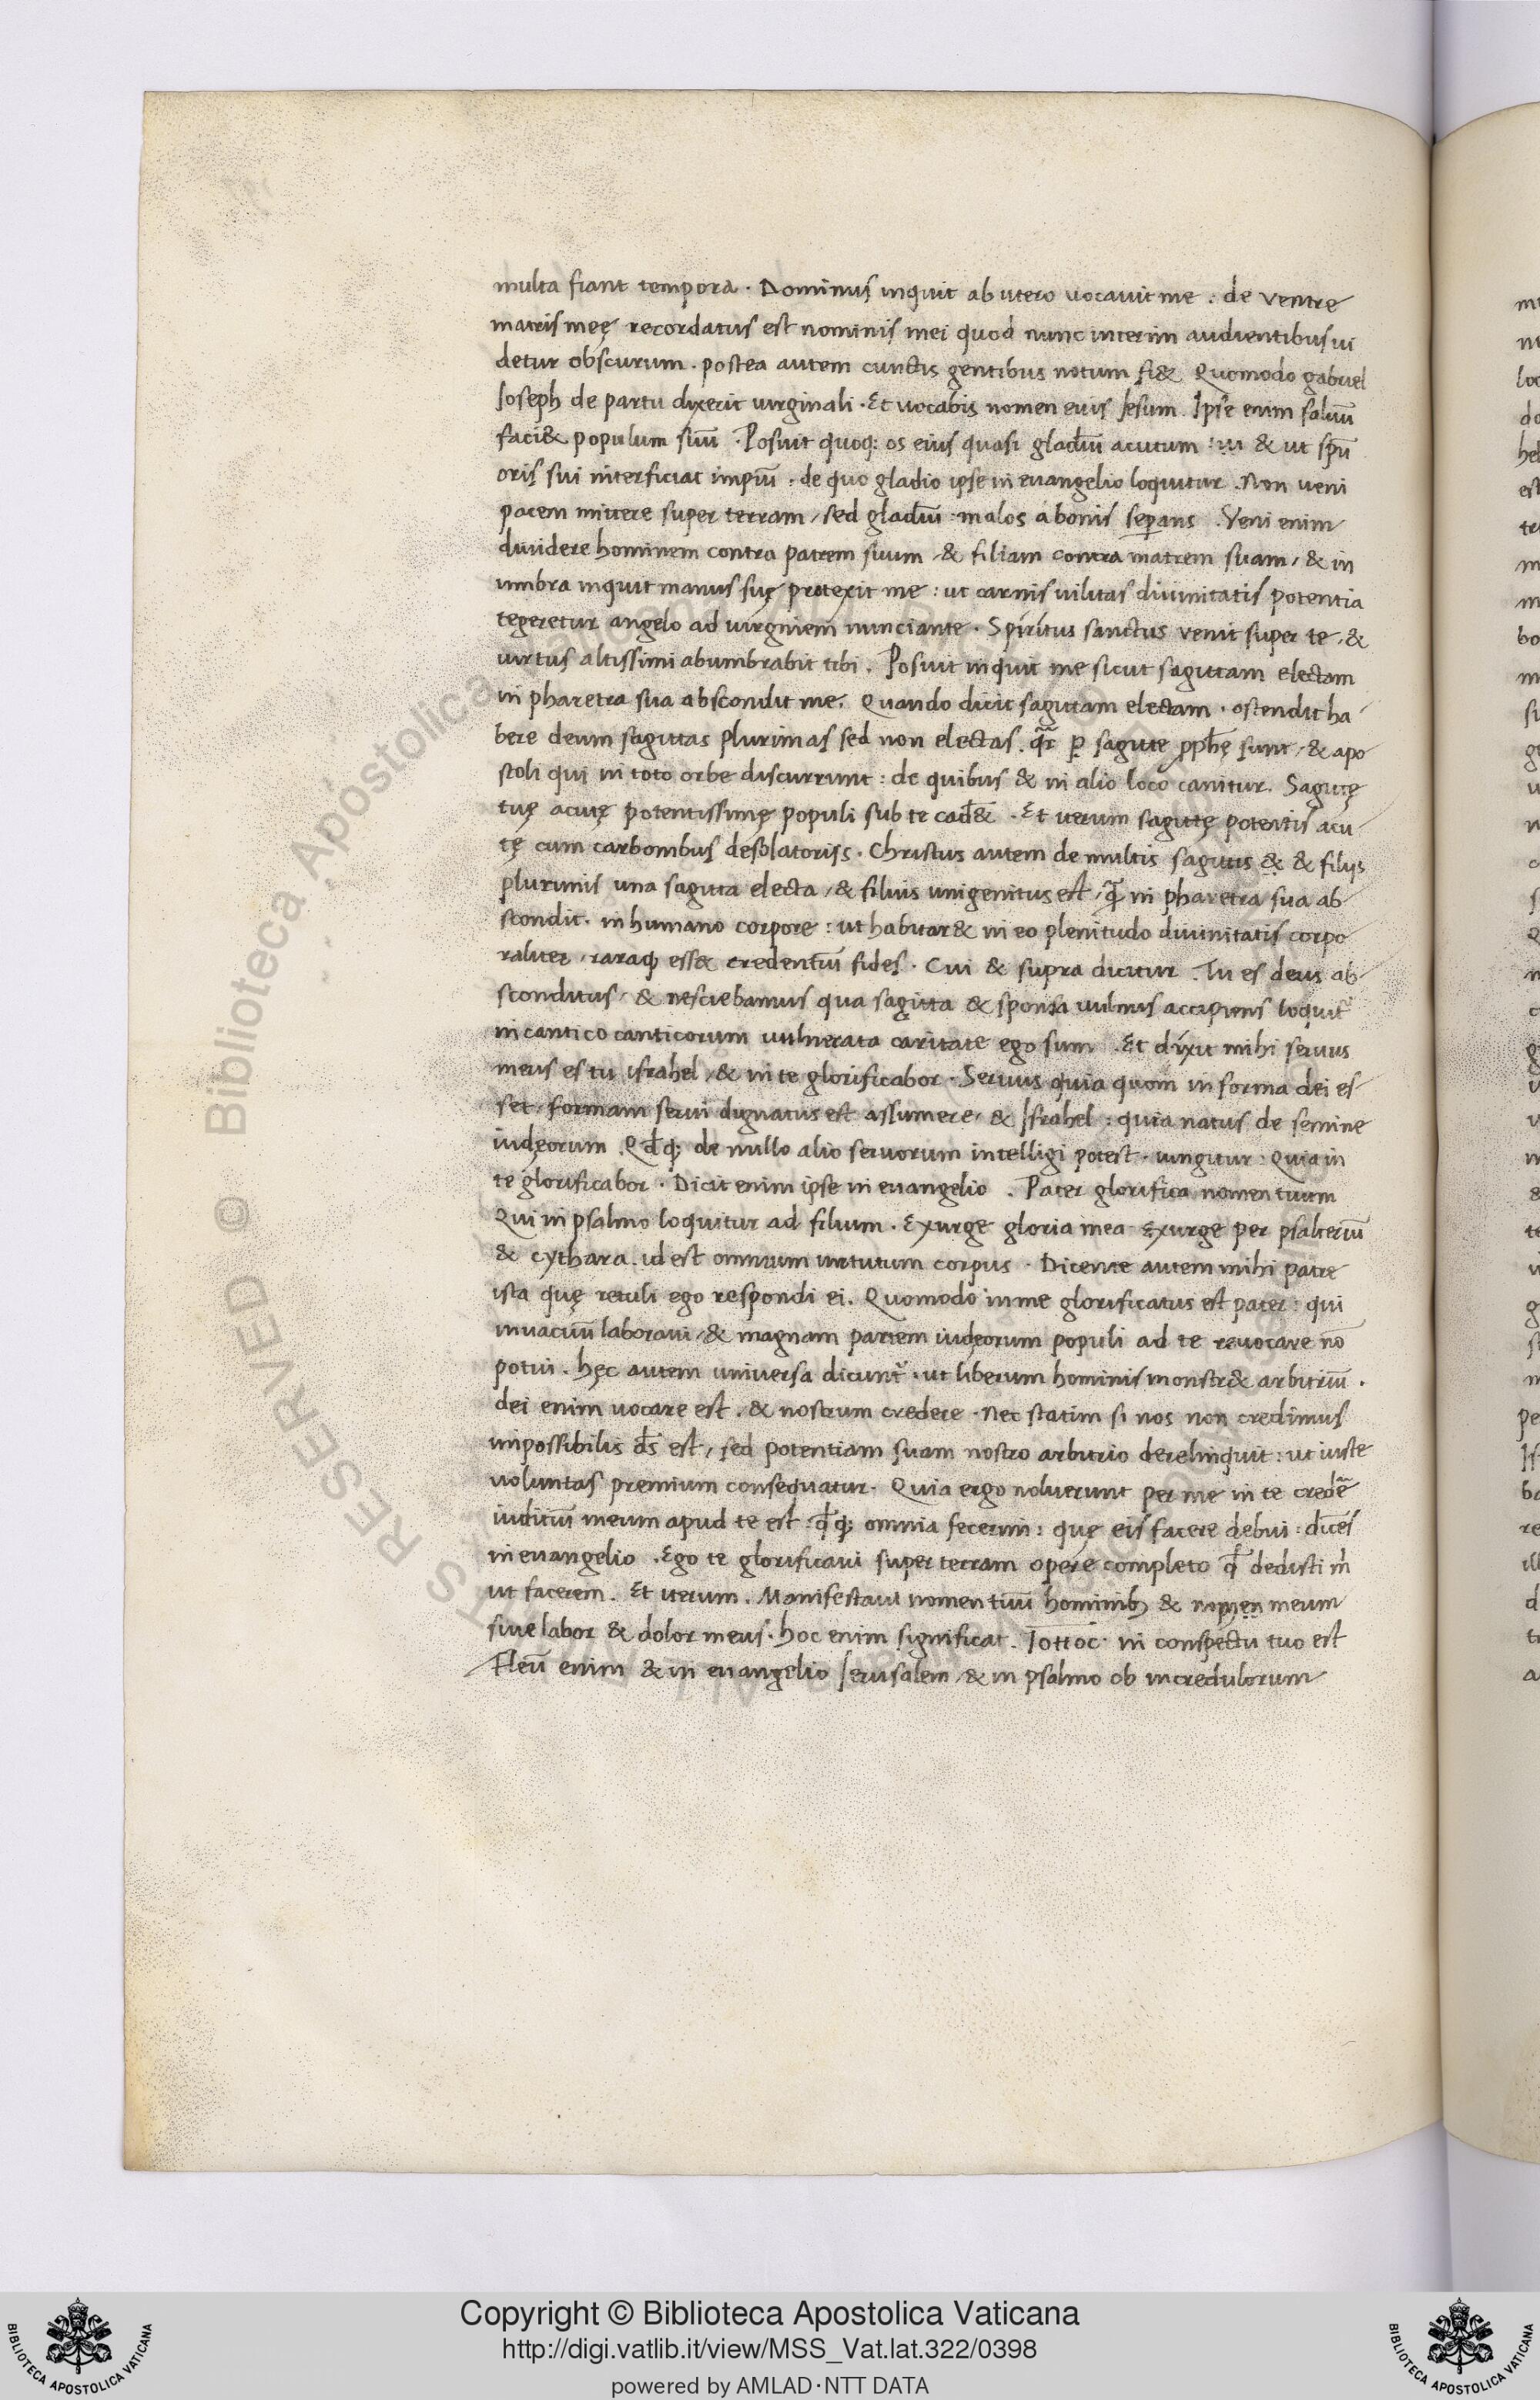 multa fiant tempora. Dominus inquit ab utero uocauit me : de ventre
matris meę recordatus est nominis mei quod nunc interim audientibus ui
detur obscurum. postea autem cunctis gentibus notum fi& Quomodo gabriel
Ioseph de partu dixerit uirginali. Et uocabis nomen eius Iesum. Ipse enim saluū
faci& populum suū. Posuit quoq; os eius quasi gladiū acutum & ut spū
oris sui interficiat impiū. de quo gladio ipse in euangelio loquitur. Non veni
pacem mittere super terram, sed gladiū malos a bonis separans. Veni enim
diuidere hominem contra patrem suum, & filiam contra matrem suam, & in
umbra inquit manus suę protexit me : ut carnis uilitas diuinitatis potentia
tegeretur angelo ad uirginem nunciante. Spiritus sanctus veniet super te, &
uirtus altissimi abumbrabit tibi. Posuit inquit me sicut sagittam electam
in pharetra sua abscondit me. Quando dicit sagittam electam. ostendit ha
bere deum sagittas plurimas sed non electas. sagitte pphę sunt, & apo
stoli qui in toto orbe discurrunt : de quibus & in alio loco canitur. Sagittę
tuę acutę potentissimę populi sub te cad&. Et iterum sagittę potentis acu
tę cum carbonibus desolatoriis. Christus autem de multis sagittis & & filijs
plurimis una sagitta electa, & filius unigenitus est, in pharetra sua ab
scondit. in humano corpore : ut habitar& in eo plenitudo diuinitatis corpo
raliter, raraq; ess& credentiū fides. Cui & supra dicitur. Tu es deus ab
sconditus, & nesciebamus qua sagitta & sponsa uulnus accipiens loquit̃
in cantico canticorum uulnerata caritate ego sum. Et dixit mihi seruus
meus es tu israhel, & in te glorificabor. Seruus quia quom in forma dei es
set, formam serui dignatus est assumere, & Israhel : quia natus de semine
iudęorum. Qđq; de nullo alio seruorum intelligi potest. iungitur : Quia in
te glorificabor. Dicit enim ipse in euangelio. Pater glorifica nomen tuum
Qui in psalmo loquitur ad filium. Exurge gloria mea exurge per psalteriū
& cythara. id est omnium uirtutum corpus. Dicente autem mihi patre
ista quę retuli ego respondi ei. Quomodo in me glorificatus est pater : qui
in uacuū laboraui, & magnam partem iudęorum populi ad te reuocare nō
potui. hęc autem universa dicunt̃. ut liberum hominis monstr& arbitriū.
dei enim uocare est, & nostrum credere. nec statim si nos non credimus
impossibilis ds est, sed potentiam suam nostro arbitrio derelinquit : ut iuste
uoluntas premium consequatur. Quia ergo noluerunt per me in te credẽ
iuditiū meum apud te est : qđq; omnia fecerim : quę eis facere debui : dicẽs
in euangelio. Ego te glorificaui super terram opere completo qđ dedisti m̃
ut facerem. Et iterum. Manifestaui nomen tuū hominib; & nomen meum
siue labor & dolor meus. hoc enim significat. in conspectu tuo est
Fleū enim & in euangelio Ierusalem, & in psalmo ob incredulorum
© Biblioteca Apostolica Vaticana ALL RIGHTS RESERVED
Copyright © Biblioteca Apostolica Vaticana
http://digi.vatlib.it/view/MSS_Vat.lat.322/0398
powered by AMLAD·NTT DATA
BIBLIOTECA APOSTOLICA VATICANA
BIBLIOTECA APOSTOLICA VATICANA